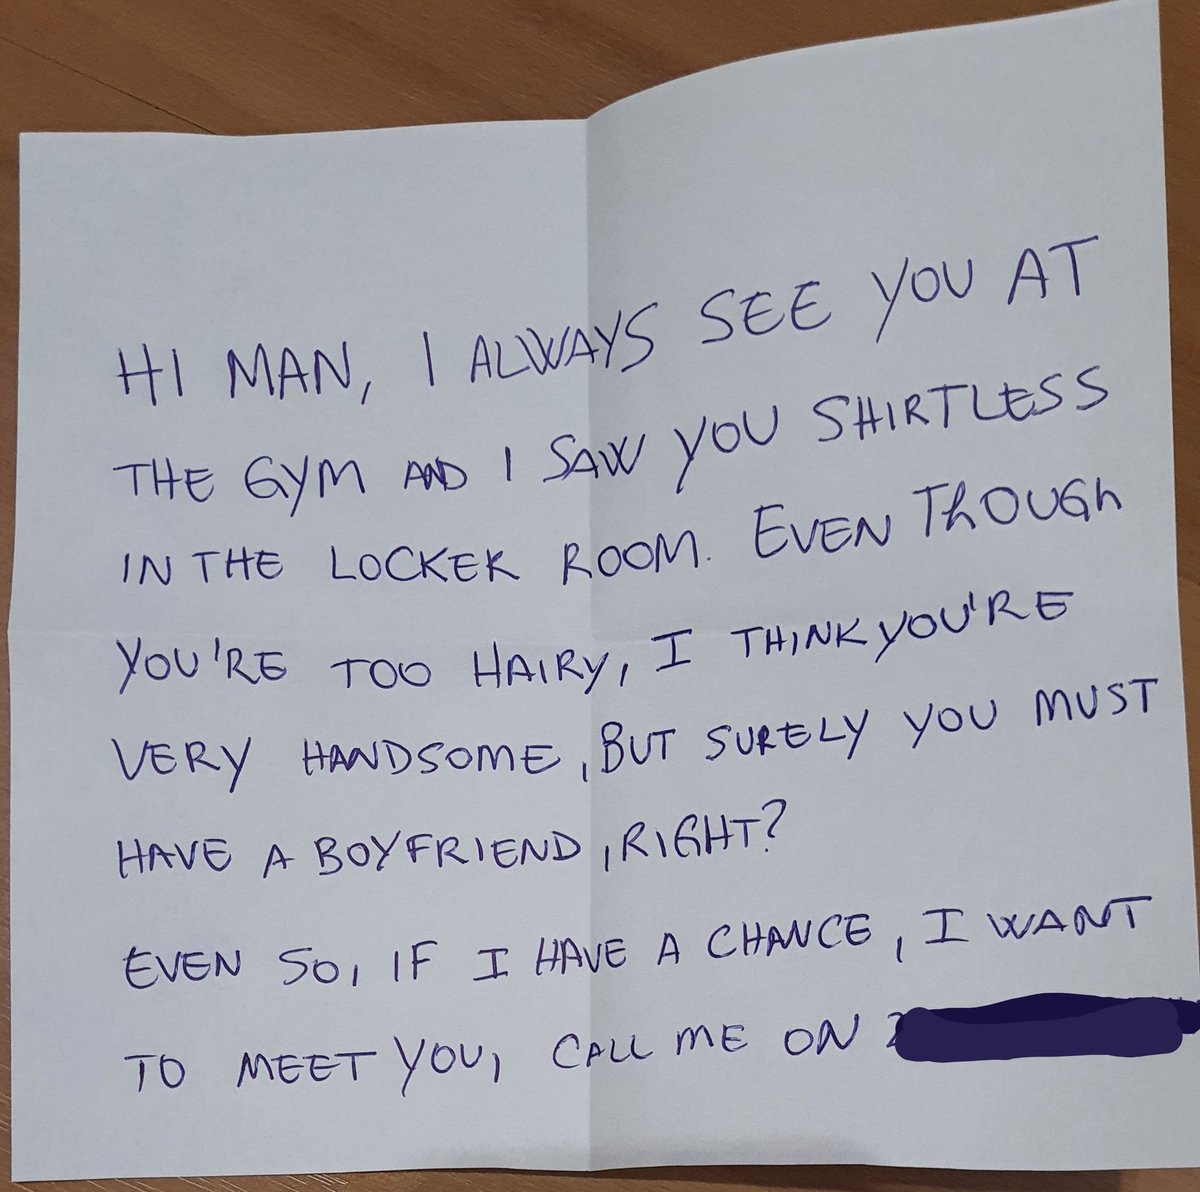 HI MAN, I ALWAYS SEE YOU AT
THE GYM AND I SAW YOU SHIRTLESS
IN THE LOCKER ROOM. EVEN THOUGH
YOU'RE TOO HAIRY, I THINK YOU'RE
VERY HANDSOME, BUT SURELY YOU MUST
HAVE A BOYFRIEND, RIGHT?
EVEN SO, IF I HAVE A CHANCE, I WANT
TO MEET YOU, CALL ME ON